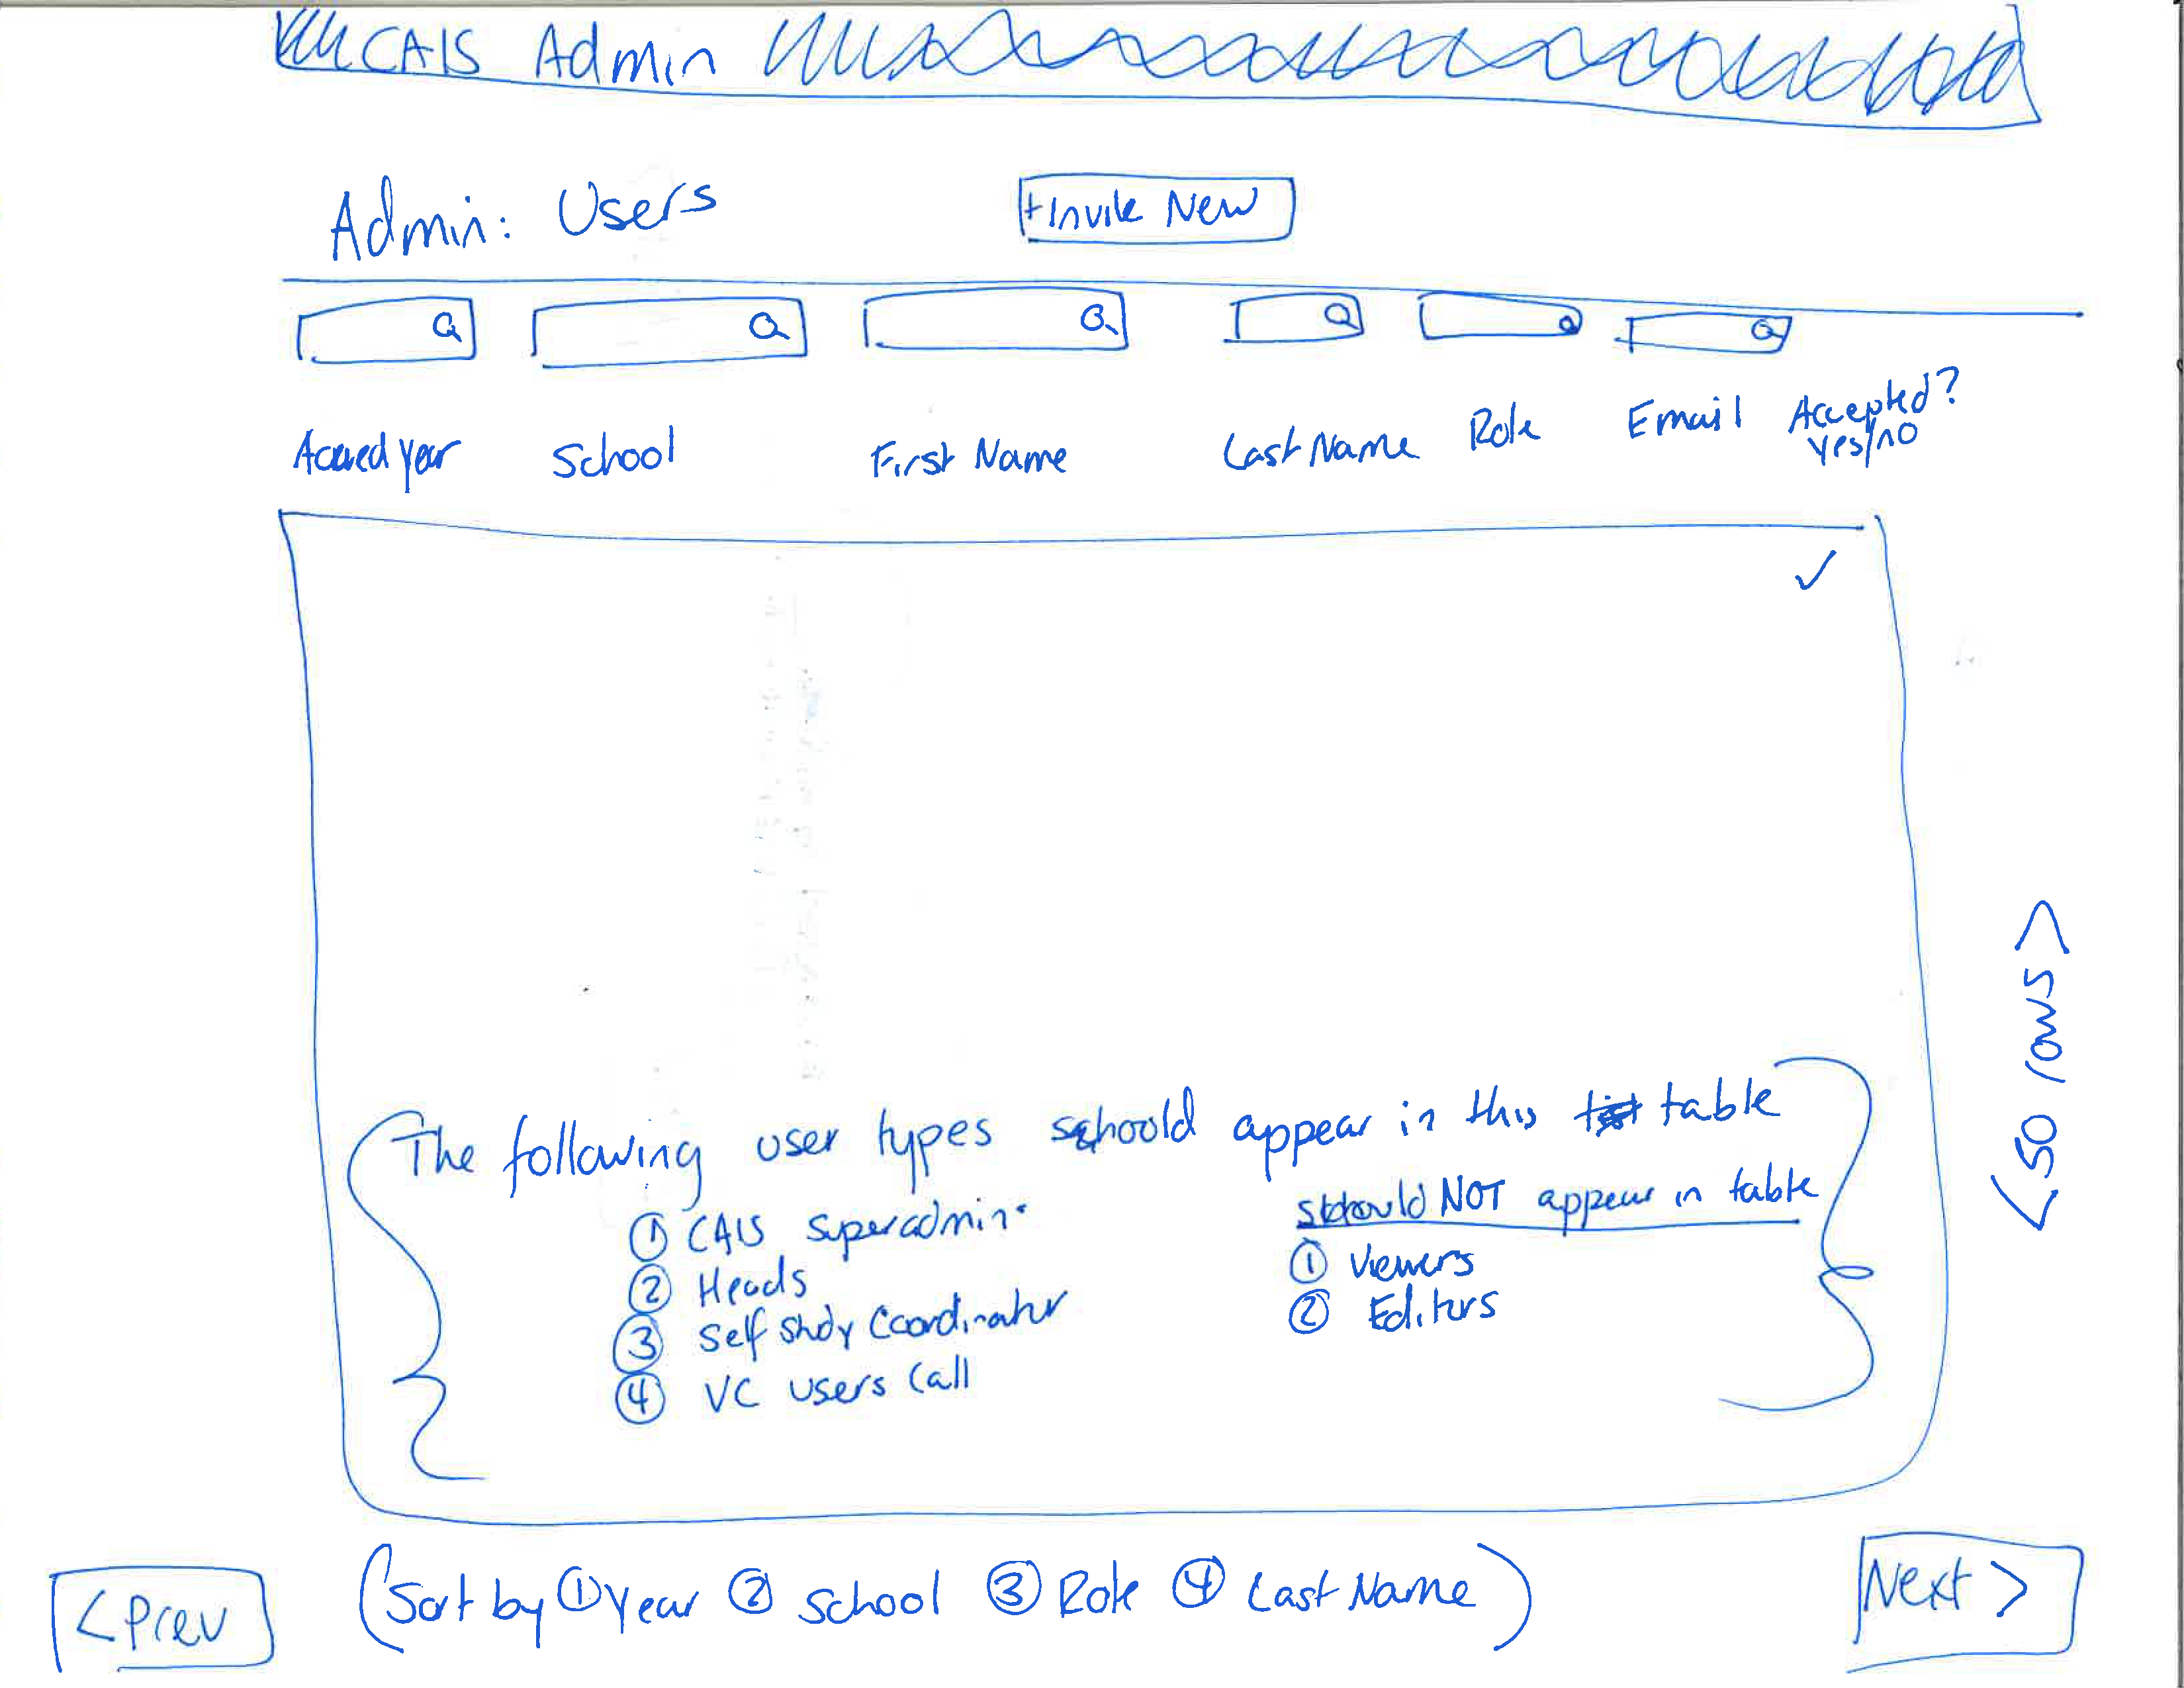 CAIS Admin
Admin: Users
+Invite New
Accred Year School First Name Last Name Role Email Accepted?
yes/no
✓
<50 rows>
The following user types should appear in this table
① CAIS Superadmin
② Heads
③ Self Study Coordinator
④ VC users (all
should NOT appear in table
① Viewers
② Editors
< Prev
(Sort by ① Year ② School ③ Role ④ Last Name)
Next >